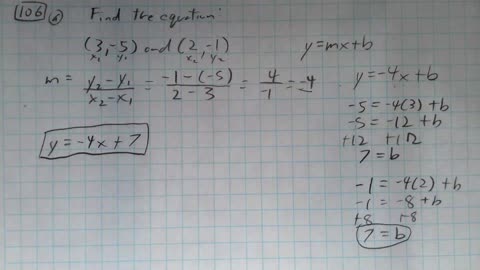 106 a) Find the equation:
(3, -5) and (2, -1)
x₁ y₁ x₂ y₂
m = y₂ - y₁ / x₂ - x₁ = -1 - (-5) / 2 - 3 = 4 / -1 = -4
y = -4x + 7
y = mx + b
y = -4x + b
-5 = -4(3) + b
-5 = -12 + b
+12 +12
7 = b
-1 = -4(2) + b
-1 = -8 + b
+8 +8
7 = b